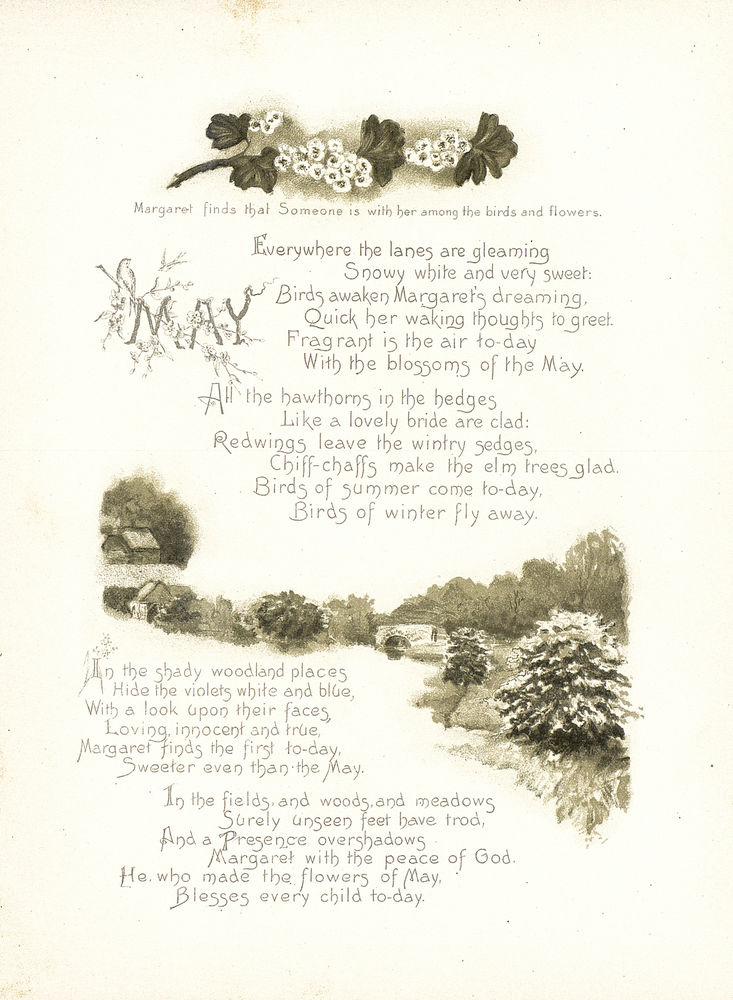 Margaret finds that Someone is with her among the birds and flowers.
MAY
Everywhere the lanes are gleaming
Snowy white and very sweet:
Birds awaken Margaret's dreaming,
Quick her waking thoughts to greet.
Fragrant is the air to-day
With the blossoms of the May.
All the hawthorns in the hedges
Like a lovely bride are clad:
Redwings leave the wintry sedges,
Chiff-chaffs make the elm trees glad.
Birds of summer come to-day,
Birds of winter fly away.
In the shady woodland places
Hide the violets white and blue,
With a look upon their faces,
Loving, innocent and true,
Margaret finds the first to-day,
Sweeter even than the May.
In the fields, and woods, and meadows
Surely unseen feet have trod,
And a Presence overshadows
Margaret with the peace of God.
He, who made the flowers of May,
Blesses every child to-day.